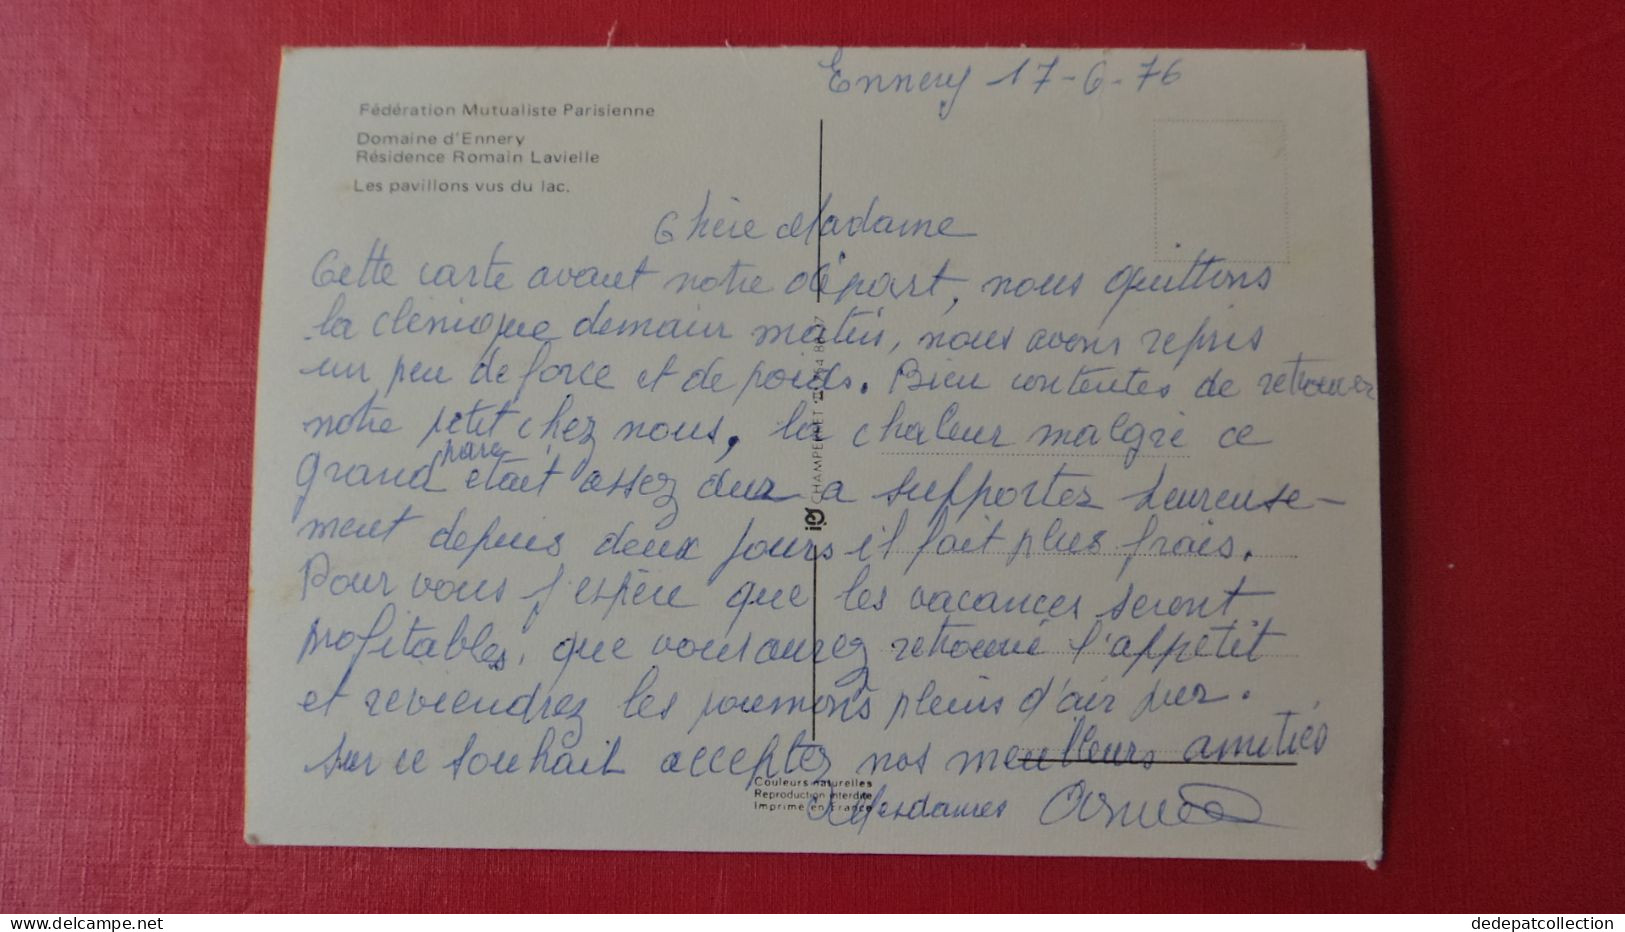 Ennery 17-6-76
Fédération Mutualiste Parisienne
Domaine d'Ennery
Résidence Romain Lavielle
Les pavillons vus du lac.
Chère Madame
Cette carte avant notre départ, nous quittons
la clinique demain matin, nous avons repris
un peu de force et de poids. Bien contentes de retrouver
notre petit chez nous, la chaleur malgré ce
grand parc était assez dur a supporter heureuse-
ment depuis deux jours il fait plus frais.
Pour vous j'espère que les vacances seront
profitables, que vous aurez retrouvé l'appétit
et reviendrez les poumons pleins d'air pur.
Sur ce souhait acceptez nos meilleurs amitiés
Mesdames
CHAMPERRET
Couleurs naturelles
Reproduction interdite
Imprimé en France
dedepatcollection